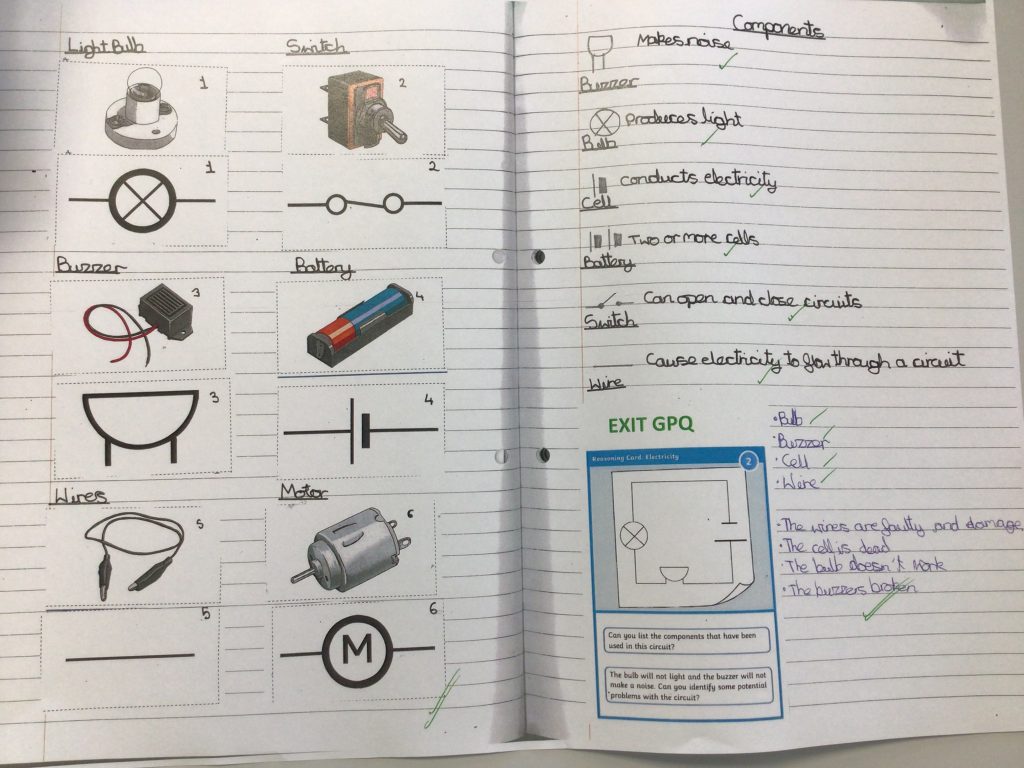 Light Bulb
Switch
1
2
1
2
Buzzer
Battery
3
4
3
4
Wires
Motor
5
6
5
6
M
Components
Makes noise
Buzzer
Produces light
Bulb
conducts electricity
Cell
Two or more cells
Battery
Can open and close circuits
Switch
Cause electricity to flow through a circuit
Wire
EXIT GPQ
Reasoning Card: Electricity
2
Can you list the components that have been
used in this circuit?
The bulb will not light and the buzzer will not
make a noise. Can you identify some potential
problems with the circuit?
• Bulb
• Buzzer
• Cell
• Were
• The wires are faulty and damage
• The cell is dead
• The bulb doesn't work
• The buzzers broken